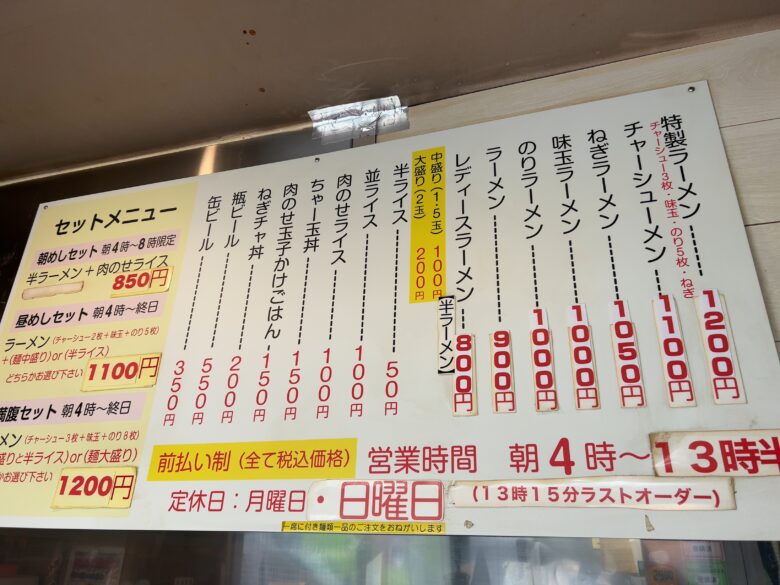 特製ラーメン 1200円
チャーシュー3枚・味玉・のり5枚・ねぎ
チャーシューメン 1100円
ねぎラーメン 1050円
味玉ラーメン 1000円
のりラーメン 1000円
ラーメン 900円
レディースラーメン【半ラーメン】 800円
中盛り(1・5玉) 100円
大盛り(2玉) 200円
半ライス 50円
並ライス 100円
肉のせライス 100円
ちゃー玉丼 150円
肉のせ玉子かけごはん 150円
ねぎチャ丼 200円
瓶ビール 550円
缶ビール 350円
セットメニュー
朝めしセット 朝4時〜8時限定
半ラーメン+肉のせライス
850円
昼めしセット 朝4時〜終日
ラーメン(チャーシュー2枚+味玉+のり5枚)
+(麺中盛り)or(半ライス)
どちらかお選び下さい 1100円
満腹セット 朝4時〜終日
メン(チャーシュー3枚+味玉+のり8枚)
盛りと半ライス)or(麺大盛り)
かお選び下さい
1200円
前払い制(全て税込価格) 営業時間 朝4時〜13時半
定休日:月曜日・日曜日 (13時15分ラストオーダー)
一席に付き麺類一品のご注文をおねがいします